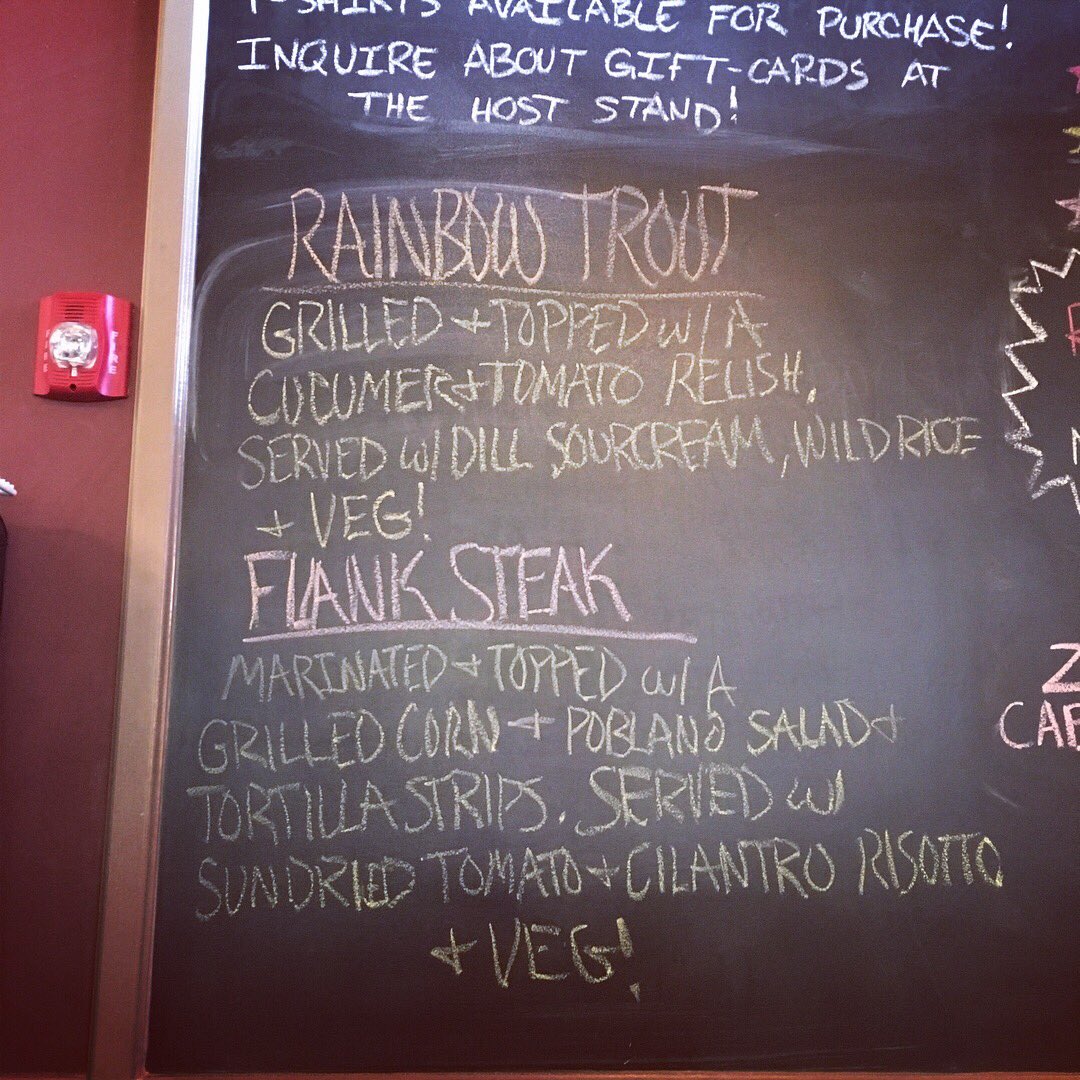 T-SHIRTS AVAILABLE FOR PURCHASE!
INQUIRE ABOUT GIFT-CARDS AT
THE HOST STAND!
RAINBOW TROUT
GRILLED + TOPPED W/ A
CUCUMER + TOMATO RELISH,
SERVED W/ DILL SOURCREAM, WILD RICE
+ VEG!
FLANK STEAK
MARINATED + TOPPED W/ A
GRILLED CORN + POBLANO SALAD +
TORTILLA STRIPS. SERVED W/
SUNDRIED TOMATO + CILANTRO RISOTTO
+ VEG!